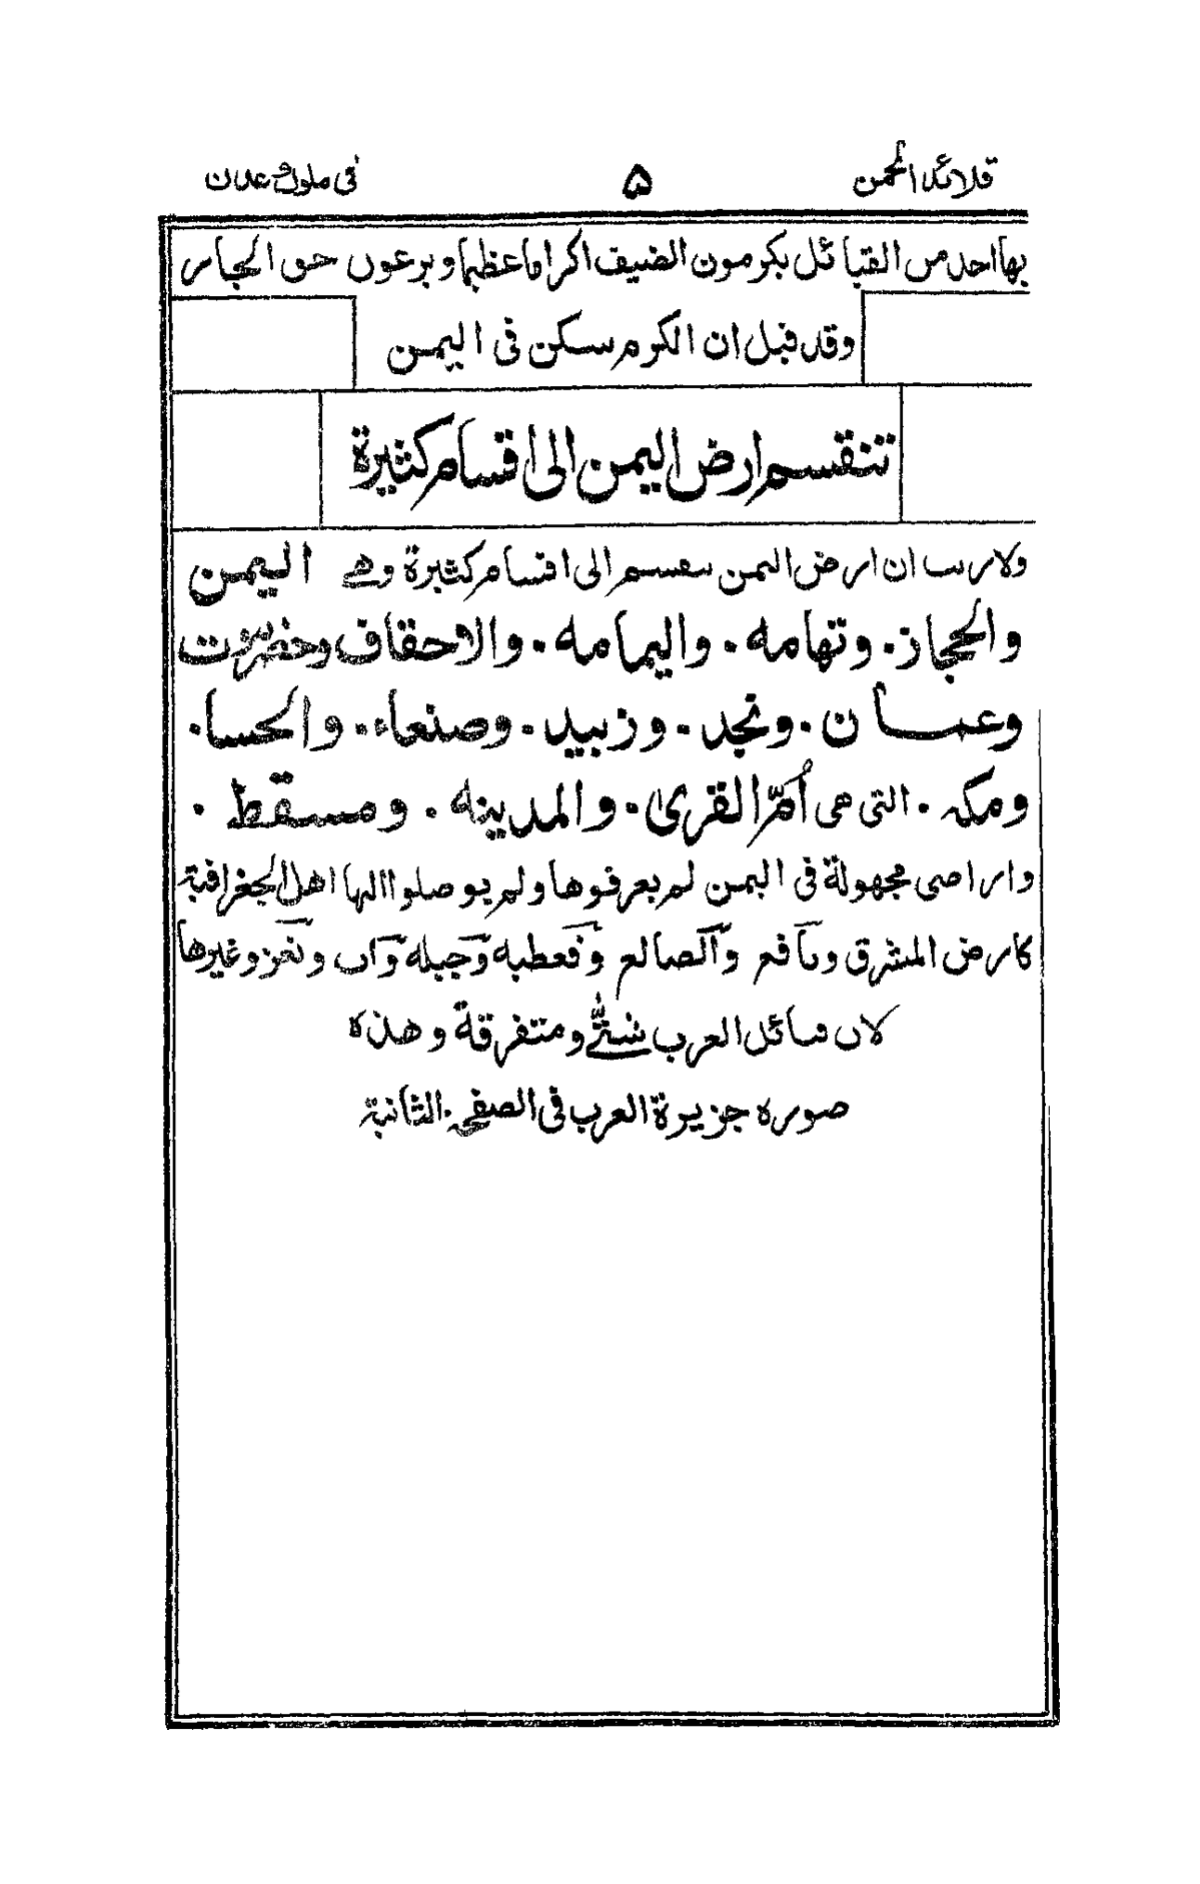 قلائد الجمن ۵ فى ملوك عدن
بها احد من القبائل يكرمون الضيف اكراما عظيما ويرعون حق الجار
وقد قيل ان الكرم سكن فى اليمن
تنقسم ارض اليمن الى اقسام كثيرة
ولا ريب ان ارض اليمن تنقسم الى اقسام كثيرة وهے اليمن
والحجاز . وتهامه . واليمامه . والاحقاف وحضرموت
وعمان . ونجد . وزبيد . وصنعاء . والحسا .
ومكه . التى هى اُمّ القرىٰ . والمدينه . ومسقط .
واراضى مجهولة فى اليمن لم يعرفوها ولم يوصلوا اليها اهل الجغرافية
كارض المشرق ويافع والضالع وقعطبه وجبله واب وتعز وغيرها
لان قبائل العرب شتّٰے ومتفرقة وهذه
صوره جزيرة العرب فى الصفحه الثانية